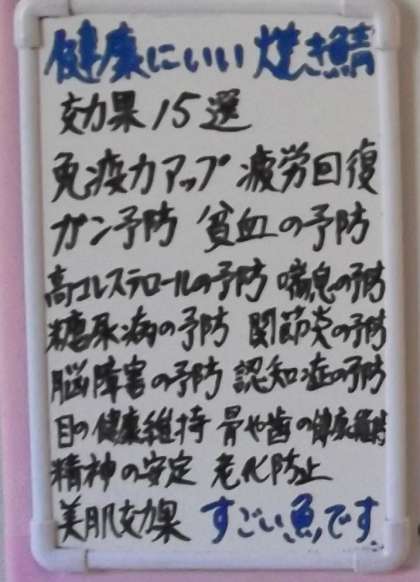 健康にいい焼き鯖
効果15選
免疫力アップ 疲労回復
ガン予防 貧血の予防
高コレステロールの予防 喘息の予防
糖尿病の予防 関節炎の予防
脳障害の予防 認知症の予防
目の健康維持 骨や歯の健康維持
精神の安定 老化防止
美肌効果 すごい魚です